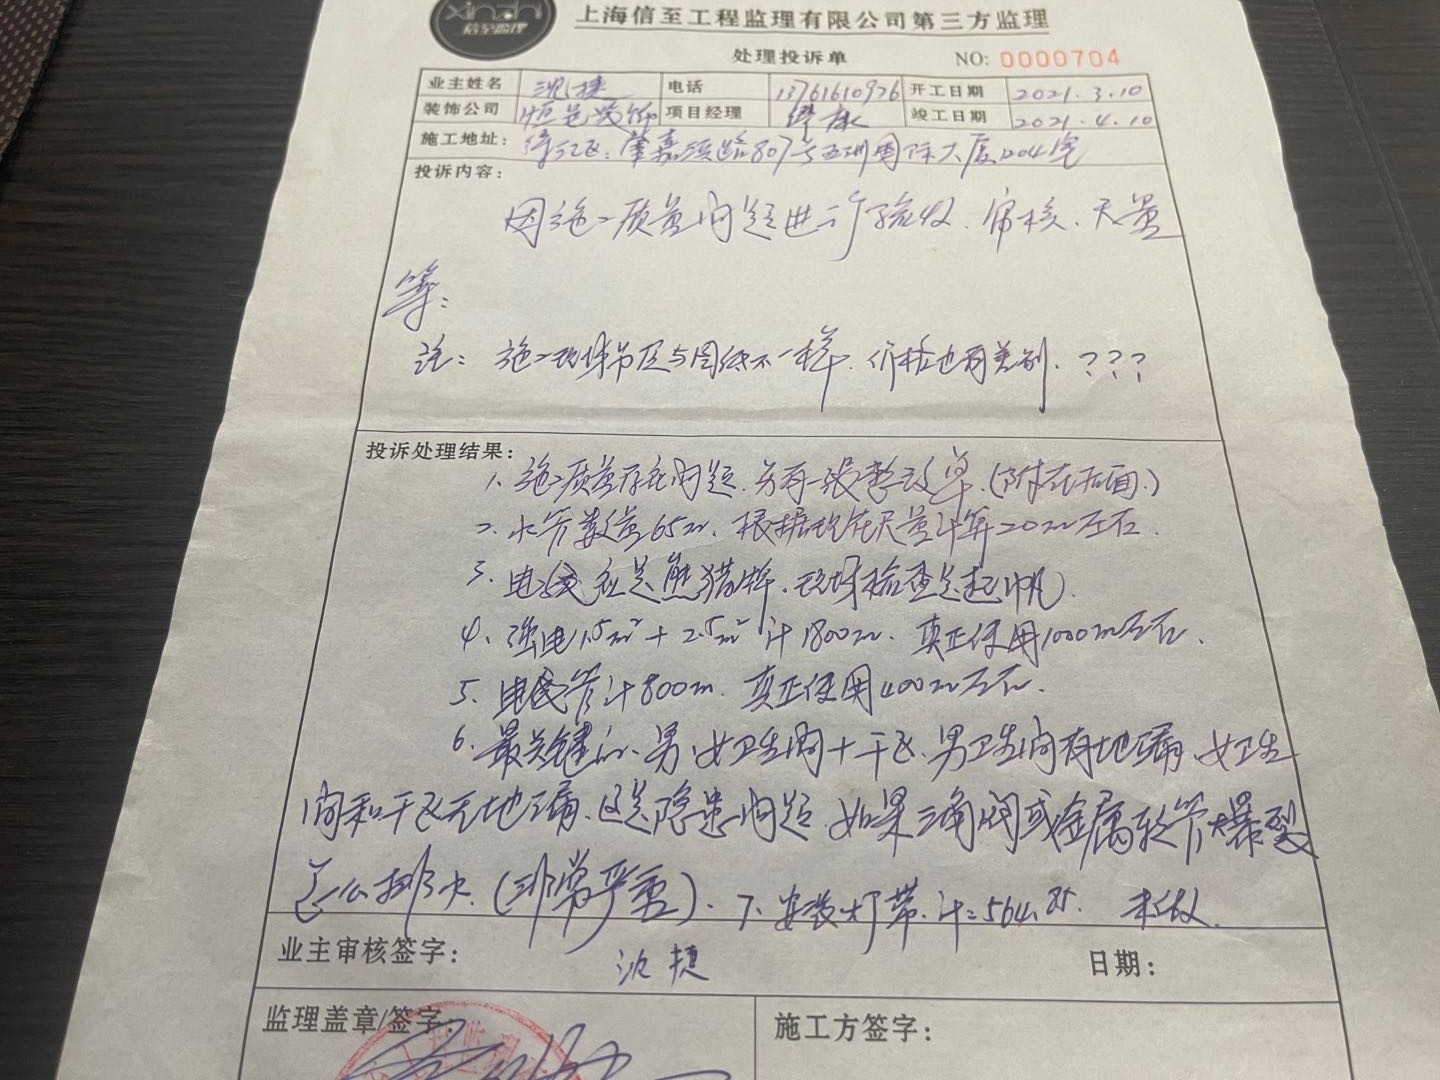 信至监理
上海信至工程监理有限公司第三方监理
处理投诉单 NO: 0000704
业主姓名 沈捷 电话 13761610926 开工日期 2021.3.10
装饰公司 恒邑装饰 项目经理 竣工日期 2021.4.10
施工地址: 徐汇区: 肇嘉浜路807号五洲国际大厦1204室
投诉内容:
因施工质量问题进行验收、审核、尺量
等:
注: 施工现场节点与图纸不一样、价格也有差别、???
投诉处理结果:
1、施工质量存在问题、另有一张整改单、(附在后面)
2、水管数量65m、根据现在尺量计算20m左右.
3、电线应是熊猫牌、现场检查是起帆
4、强电1.5m²+2.5m²计1800m、真正使用1000m左右.
5、电线管计800m、真正使用400m左右.
6、最关键的、男、女卫生间+干区、男卫生间有地漏、女卫生
间和干区无地漏、这是隐患问题、如果三角阀或金属软管爆裂
怎么排水(非常严重)、7、安装灯带、计=564.85. 未做.
业主审核签字: 沈捷 日期:
监理盖章/签字: 施工方签字: